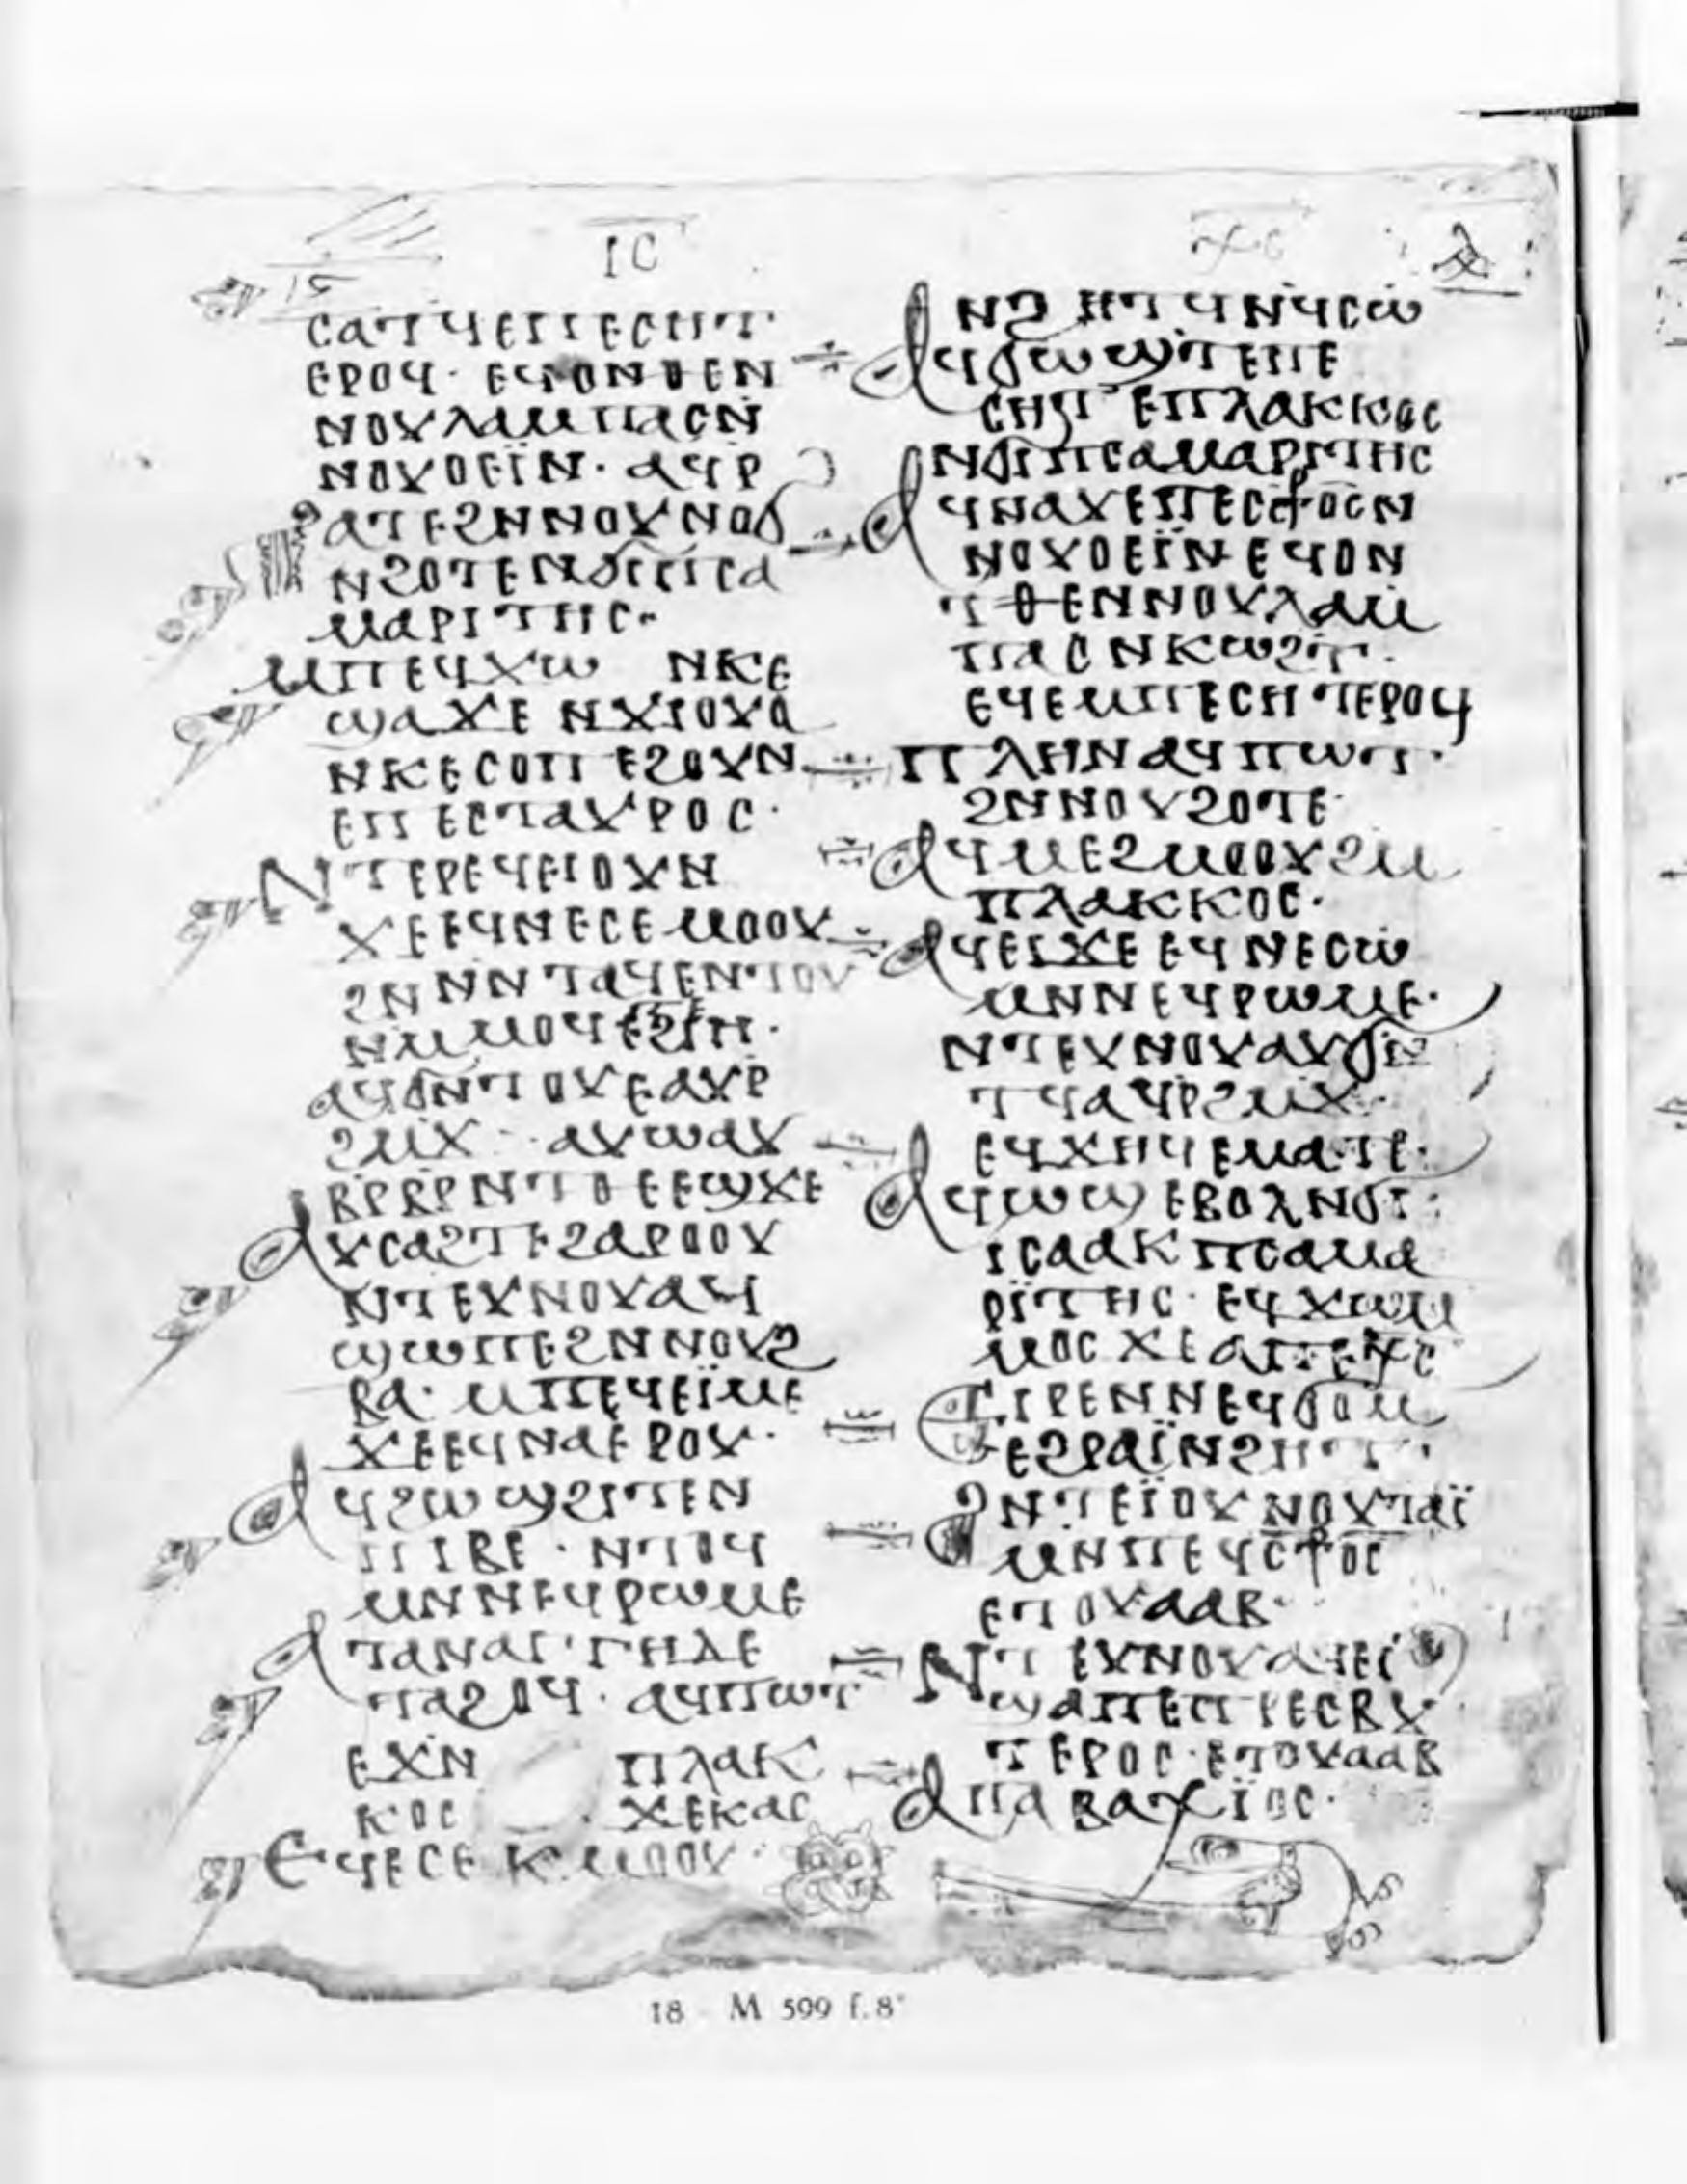 ⲓ̅ⲥ̅
ⲭ̅ⲥ̅
ⲓⲋ
ⲥⲁⲧϥⲉⲡⲉⲥⲏⲧ·
ⲉⲣⲟϥ· ⲉϥⲟⲛⲑⲉⲛ
ⲛⲟⲩⲗⲁⲙⲡⲁⲥⲛ̇
ⲛⲟⲩⲟⲉⲓ̈ⲛ· ⲁϥⲣ
ϩⲁⲧⲉϩⲛⲛⲟⲩⲛⲟϭ
ⲛϩⲟⲧⲉⲛϭⲓⲡⲥⲁ
ⲙⲁⲣⲓⲧⲏⲥ·
ⲙⲡⲉϥϫⲱ ⲛⲕⲉ
ϣⲁϫⲉ ⲛϫⲓⲟⲩⲁ
ⲛⲕⲉⲥⲟⲡ ⲉϩⲟⲩⲛ
ⲉⲡⲉⲥⲧⲁⲩⲣⲟⲥ·
ⲛⲧⲉⲣⲉϥⲉⲓⲟⲩⲛ
ϫⲉⲉϥⲛⲉⲥⲉⲙⲟⲟⲩ
ϩⲛ ⲛⲛⲧⲁϥⲉⲛⲧⲟⲩ
ⲛⲙⲙⲟϥ
ⲁϥϭⲛⲧⲟⲩⲉⲁⲩⲣ
ϩⲙϫ· ⲁⲩⲱⲁⲩ
ⲃⲣⲃⲣⲛⲧⲑⲉⲉϣϫⲉ
ⲁⲩⲥⲁϩⲧⲉϩⲁⲣⲟⲟⲩ
ⲛⲧⲉⲩⲛⲟⲩⲁϥ
ϣⲱⲡⲉϩⲛⲛⲟⲩϩ
ⲃⲁ· ⲙⲡⲉϥⲉⲓ̈ⲙⲉ
ϫⲉⲉϥⲛⲁⲉⲣⲟⲩ·
ⲁϥϩⲱϣϩⲓⲧⲉⲛ
ⲡⲓⲃⲉ· ⲛⲧⲟϥ
ⲙⲛⲛⲉϥⲣⲱⲙⲉ
ⲁⲧⲁⲛⲁⲅ'ⲅⲏⲇⲉ
ⲧⲁϩⲟϥ· ⲁϥⲡⲱⲧ
ⲉϫⲛ ⲡⲗⲁⲕ
ⲕⲟⲥ ϫⲉⲕⲁⲥ
ⲉϥⲉⲥⲉ ⲕⲙⲟⲟⲩ·
ⲛϩⲏⲧϥⲛϥⲥⲱ
ⲁϥϭⲱϣⲧⲉⲡⲉ
ⲥⲏⲧ ⲉⲡⲗⲁⲕⲕⲟⲥ
ⲛϭⲓⲡⲥⲁⲙⲁⲣⲓⲧⲏⲥ
ⲁϥⲛⲁⲩⲉⲡⲉⲥⳁⲟⲥⲛ
ⲛⲟⲩⲟⲉⲓ̈ⲛ ⲉϥⲟⲛ
ⲧⲑⲉⲛⲛⲟⲩⲗⲁⲙ
ⲡⲁⲥⲛⲕⲱϩⲧ·
ⲉϥⲉⲙⲡⲉⲥⲏⲧⲉⲣⲟϥ
ⲡⲗⲏⲛⲁϥⲡⲱⲧ·
ϩⲛⲛⲟⲩϩⲟⲧⲉ·
ⲁϥⲙⲉϩⲙⲟⲟⲩϩⲙ
ⲡⲗⲁⲕⲕⲟⲥ·
ⲁϥⲉⲓϫⲉ ⲉϥⲛⲉⲥⲱ
ⲙⲛⲛⲉϥⲣⲱⲙⲉ·
ⲛⲧⲉⲩⲛⲟⲩⲁⲩϭⲛ
ⲧϥⲁϥⲣϩⲙϫ·
ⲉϥϫⲏϥ ⲉⲙⲁⲧⲉ·
ⲁϥⲱϣ ⲉⲃⲟⲗⲛϭⲓ:
ⲓⲥⲁⲁⲕ ⲡⲥⲁⲙⲁ
ⲣⲓ̈ⲧⲏⲥ· ⲉϥϫⲱⲙ
ⲙⲟⲥ ϫⲉⲁⲡⲉⲭ̅ⲥ̅
ⲉⲓⲣⲉⲛⲛⲉϥϭⲟⲙ
ⲉϩⲣⲁⲓ̈ⲛϩⲏⲧ·
ϩⲛⲧⲉⲓ̈ⲟⲩⲛⲟⲩⲧⲁⲓ̈
ⲙⲛⲡⲉϥⲥⳁⲟⲥ
ⲉⲧⲟⲩⲁⲁⲃ·
ⲛⲧⲉⲩⲛⲟⲩⲁϥⲉⲓ
ϣⲁⲡⲉⲡⲣⲉⲥⲃⲩ
ⲧⲉⲣⲟⲥ· ⲉⲧⲟⲩⲁⲁⲃ
ⲁⲡⲁ ⲃⲁⲭⲓ̈ⲟⲥ·
18 M 599 f. 8ᵛ